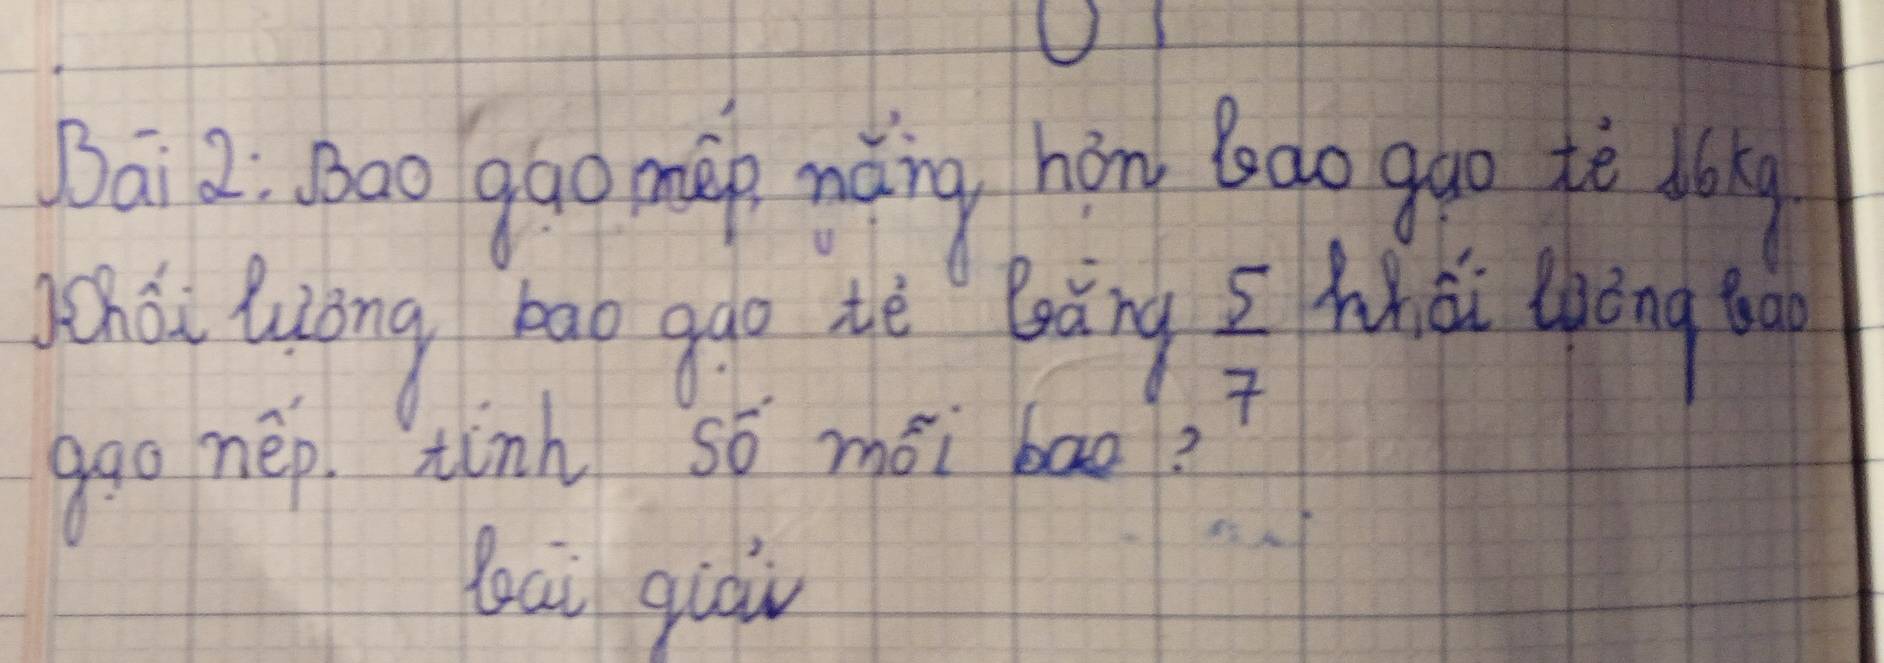 Bài 2: Bao gạo nếp nặng hơn bao gạo tẻ 16kg.
Khối lượng bao gạo tẻ bằng 5/7 khối lượng bao
gạo nếp. tính số mỗi bao?
bài giải